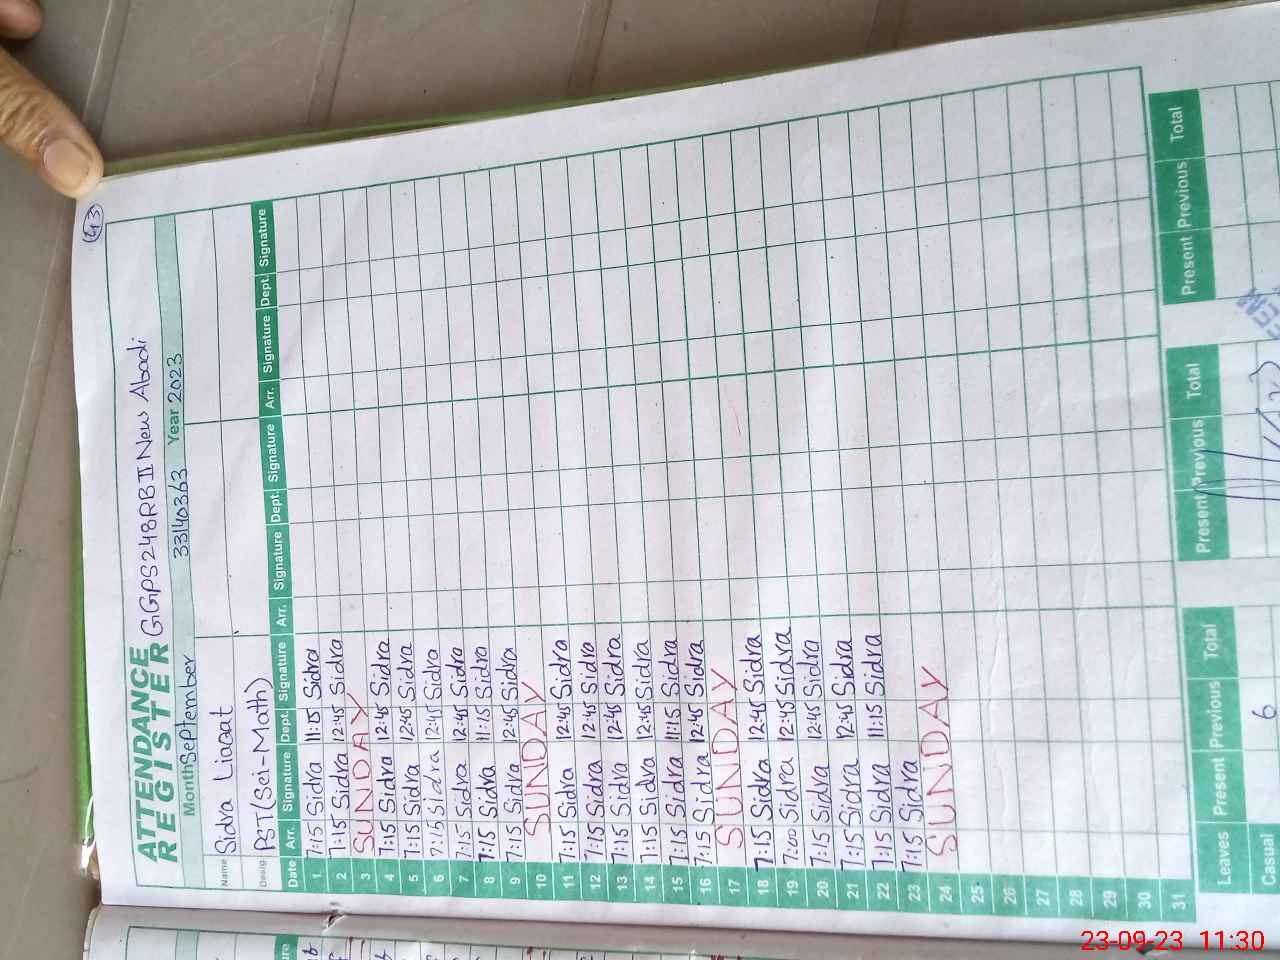 43
ATTENDANCE
REGISTER GGPS 248 RB II New Abadi
Month September 33140363 Year 2023
Name Sidra Liaqat
Desig. PST (Sci-Math)
Date Arr. Signature Dept. Signature Arr. Signature Dept. Signature Arr. Signature Dept. Signature
1 7:15 Sidra 11:15 Sidra
2 7:15 Sidra 12:45 Sidra
3 SUNDAY
4 7:15 Sidra 12:45 Sidra
5 7:15 Sidra 12:45 Sidra
6 7:15 Sidra 12:45 Sidra
7 7:15 Sidra 12:45 Sidra
8 7:15 Sidra 11:15 Sidra
9 7:15 Sidra 12:45 Sidra
10 SUNDAY
11 7:15 Sidra 12:45 Sidra
12 7:15 Sidra 12:45 Sidra
13 7:15 Sidra 12:45 Sidra
14 7:15 Sidra 12:45 Sidra
15 7:15 Sidra 11:15 Sidra
16 7:15 Sidra 12:45 Sidra
17 SUNDAY
18 7:15 Sidra 12:45 Sidra
19 7:00 Sidra 12:45 Sidra
20 7:15 Sidra 12:45 Sidra
21 7:15 Sidra 12:45 Sidra
22 7:15 Sidra 11:15 Sidra
23 7:15 Sidra
24 SUNDAY
25
26
27
28
29
30
31
Leaves Present Previous Total Present Previous Total Present Previous Total
Casual 6
23-09-23 11:30